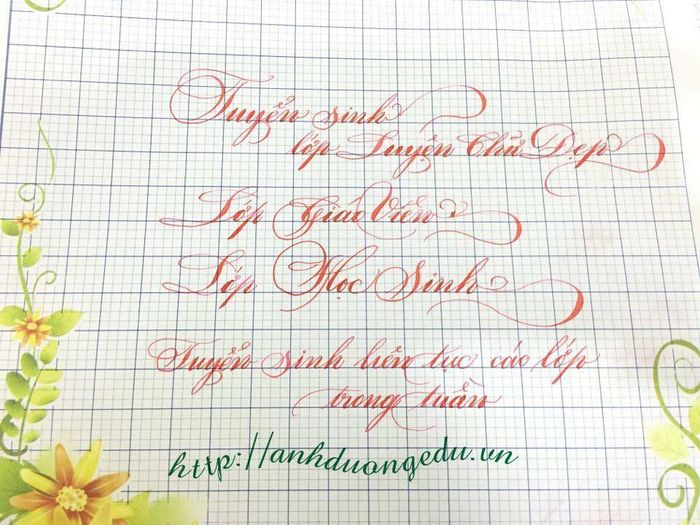 Tuyển sinh
lớp Luyện Chữ Đẹp
Lớp Giáo Viên
Lớp Học Sinh
Tuyển sinh liên tục các lớp
trong tuần
http://anhduongedu.vn